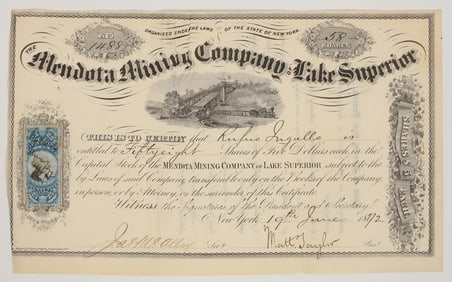 ORGANIZED UNDER THE LAWS OF THE STATE OF NEW YORK.
No 1488
58 SHARES
THE Mendota Mining Company of Lake Superior
THIS IS TO CERTIFY that Rufus Ingalls is
entitled to Fifty eight Shares of Five Dollars each in the
Capital Stock of the MENDOTA MINING COMPANY OF LAKE SUPERIOR subject to the
By Laws of said Company, transferable only on the Books of the Company
in person, or by Attorney, on the surrender of this Certificate.
Witness the Signatures of the President and Secretary
New York 19th June 1872
Secy. Matt. Taylor Prest.
SHARES $ EACH